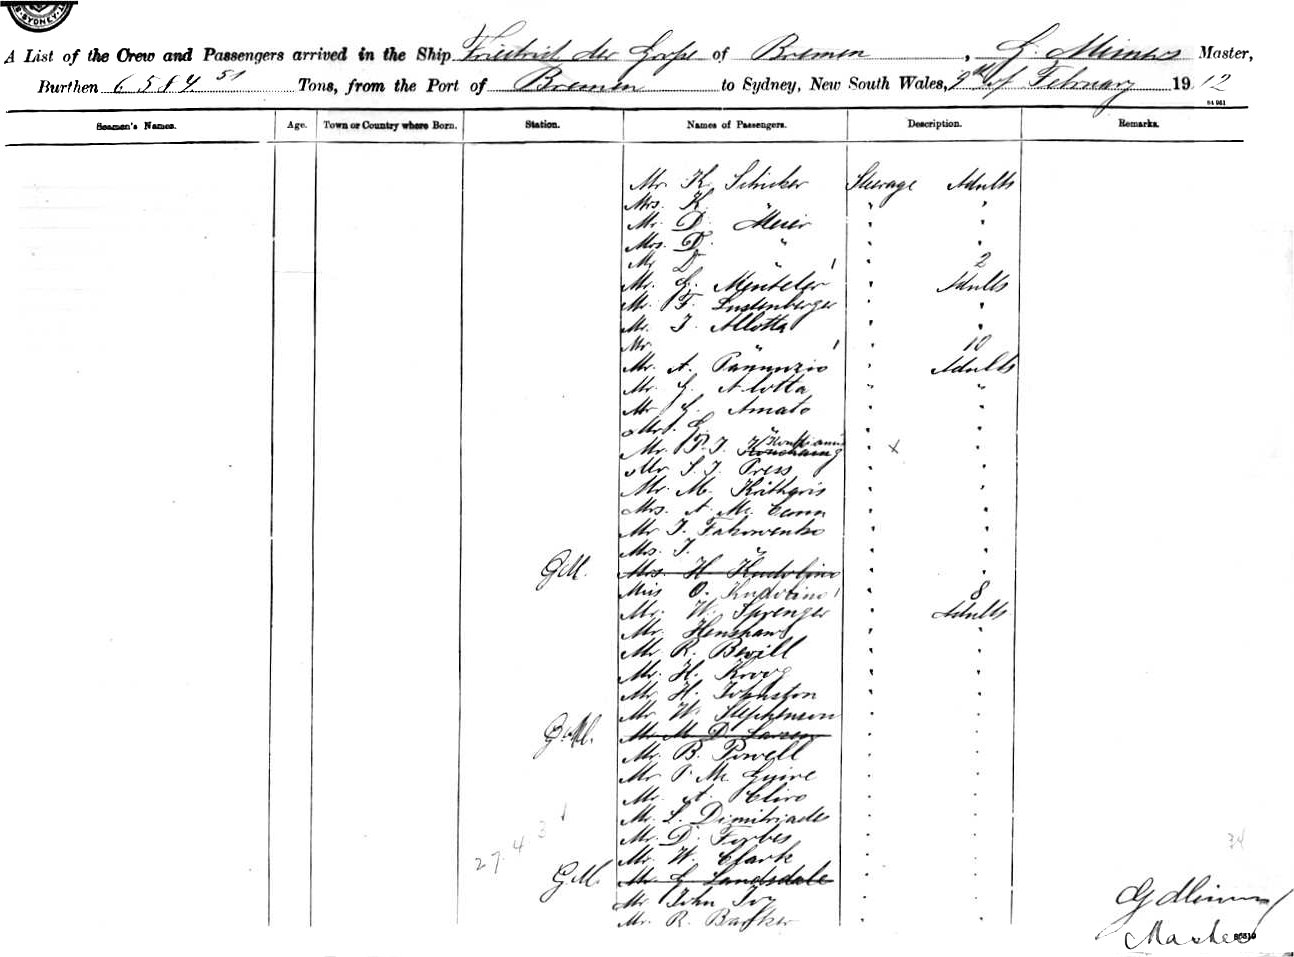 SYDNEY
A List of the Crew and Passengers arrived in the Ship Friedrich der Grosse of Bremen, G. Meiners Master,
Burthen 6584 51 Tons, from the Port of Bremen to Sydney, New South Wales, 9th of February 1912
Seamen's Names. Age. Town or Country where Born. Station. Names of Passengers. Description. Remarks.
Mr. K. Schicker Steerage Adults
Mrs. K. " " "
Mr. D. Meier " "
Mrs. D. " " "
Mr D " 1 " 2
Mr. G. " Adults
Mr. F. Lustenberger " "
Mr. J. Allotta " "
Mr. " 1 " 10
Mr. A. Pannunzio " Adults
Mr. G. Alotta " "
Mr G. Amato " "
Mr. G. " " "
Mr. P. J. " x "
Mr. S. J. Press " "
Mr. M. " "
Mrs. A. Mc. Cann " "
Mr J. " "
Mrs. J. " " "
G.M. Mrs. H " "
Miss O. 1 " 8
Mr. W. Sprenger " Adults
Mr. Henshaw " "
Mr R. Bevill " "
Mr. H. Kroog " "
Mr. H. Johnston " "
Mr W. Stephenson " "
G.M. Mr M. D. Larsen " "
Mr. B. Powell " "
Mr P. Mc Guire " "
Mr. A. " "
Mr. L. Dimitriades " "
Mr. D. Forbes " "
Mr. W. Clark " "
27.4.31
34
G.M. Mr. G Landsdale " "
Mr John Ivy " "
Mr. R. Barker " "
G Meiners
Master